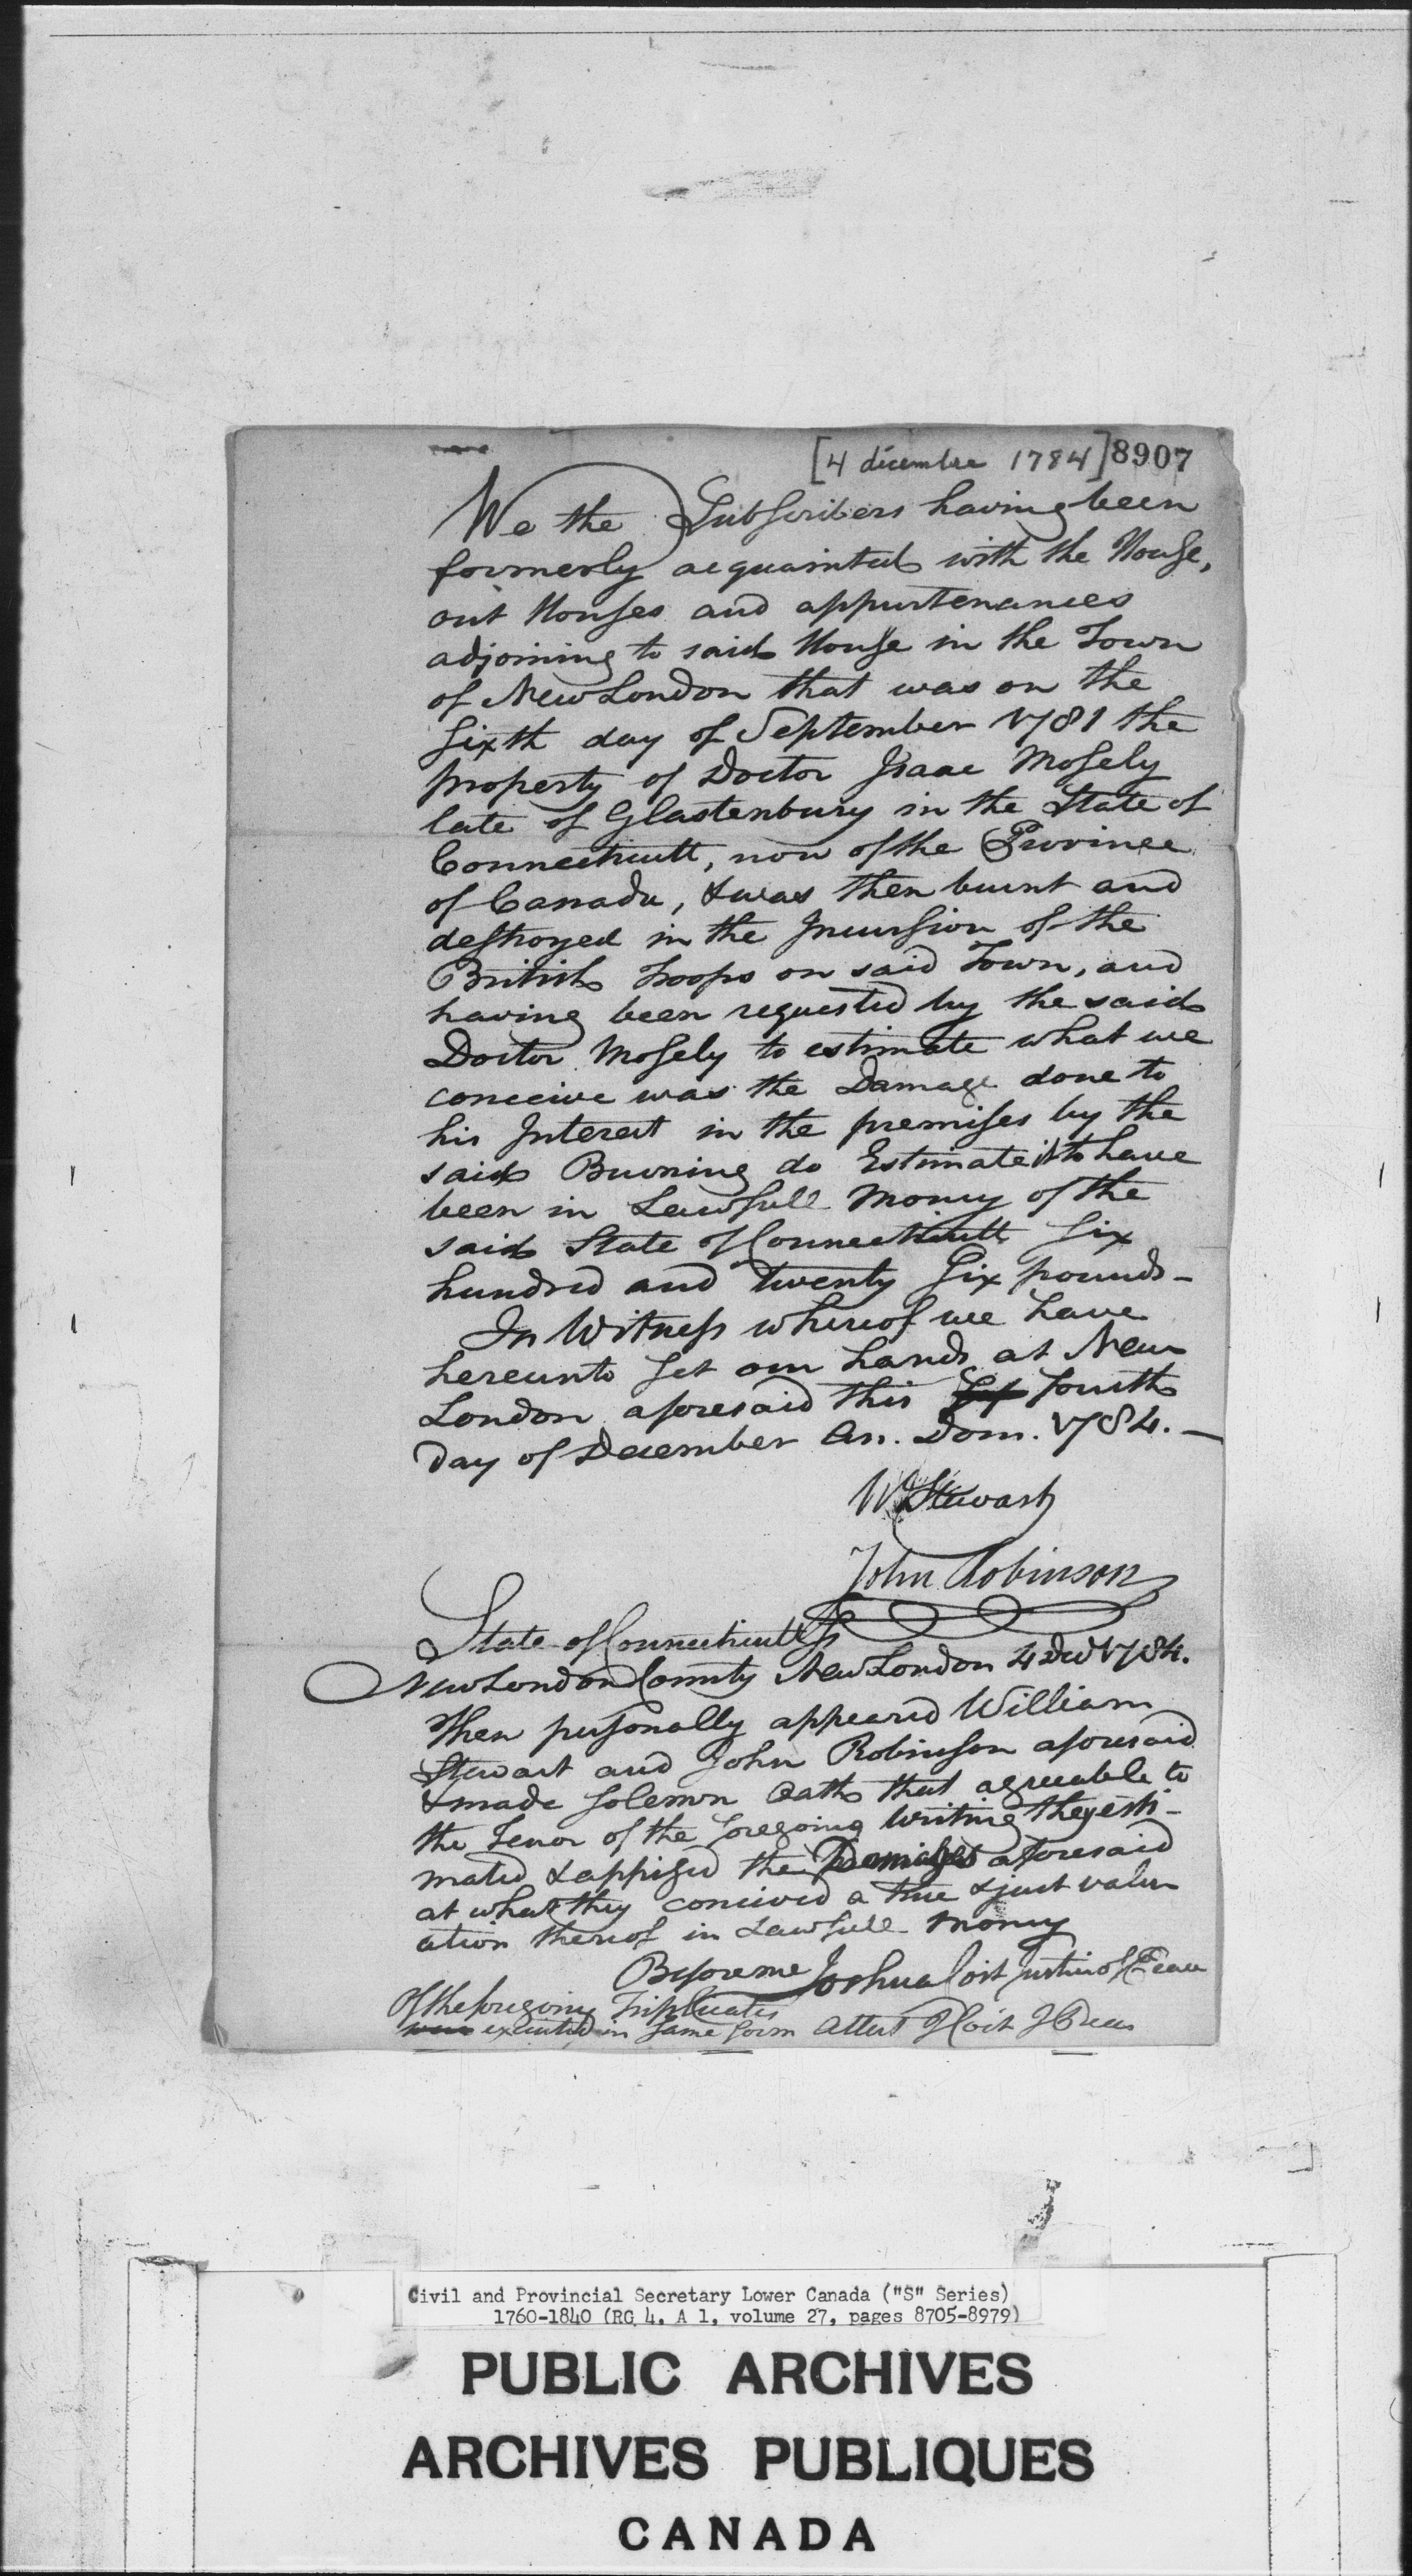 [4 décembre 1784] 8907
We the Subscribers having been
formerly acquainted with the House,
out Houses and appurtenances
adjoining to said House in the Town
of New London that was on the
Sixth day of September 1781 the
property of Doctor Isaac Mosely
late of Glastenbury in the State of
Connecticutt, now of the Province
of Canada, & was then burnt and
destroyed in the Incursion of the
British Troops on said Town, and
having been requested by the said
Doctor Mosely to estimate what we
conceive was the Damage done to
his Interest in the premises by the
said Burning do Estimate it to have
been in Lawfull Money of the
said State of Connecticutt Six
hundred and twenty Six pounds -
In Witness whereof we have
hereunto set our hands at New
London aforesaid this fourth
Day of December An. Dom. 1784. -
W Stewart
John Robinson
State of Connecticutt Ss
New London County New London 4 Decr 1784.
Then personally appeared William
Stewart and John Robinson aforesaid
& made solemn Oath that agreeable to
the Tenor of the foregoing Writing they esti-
mated & apprised the Damages aforesaid
at what they conceived a true & just valu
ation thereof in Lawfull Money
Before me Joshua Coit Justice of Peace
Of the foregoing Triplicates
were executed in same form Attest J Coit J Peace
Civil and Provincial Secretary Lower Canada ("S" Series)
1760-1840 (RG 4, A 1, volume 27, pages 8705-8979)
PUBLIC ARCHIVES
ARCHIVES PUBLIQUES
CANADA